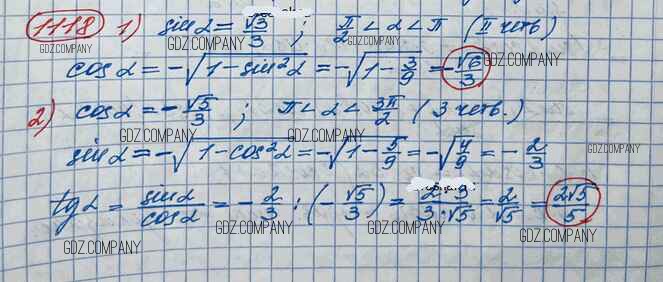 1118 1) sin α = √3/3 ; π/2 < α < π (II четв)
cos α = -√(1 - sin²α) = -√(1 - 3/9) = -√6/3
2) cos α = -√5/3 ; π < α < 3π/2 (3 четв.)
sin α = -√(1 - cos²α) = -√(1 - 5/9) = -√(4/9) = -2/3
tg α = sin α/cos α = -2/3 : (-√5/3) = 2·3/3·√5 = 2/√5 = 2√5/5
GDZ.COMPANY GDZ.COMPANY GDZ.COMPANY
GDZ.COMPANY
GDZ.COMPANY GDZ.COMPANY GDZ.COMPANY
GDZ.COMPANY
GDZ.COMPANY GDZ.COMPANY GDZ.COMPANY
GDZ.COMPANY